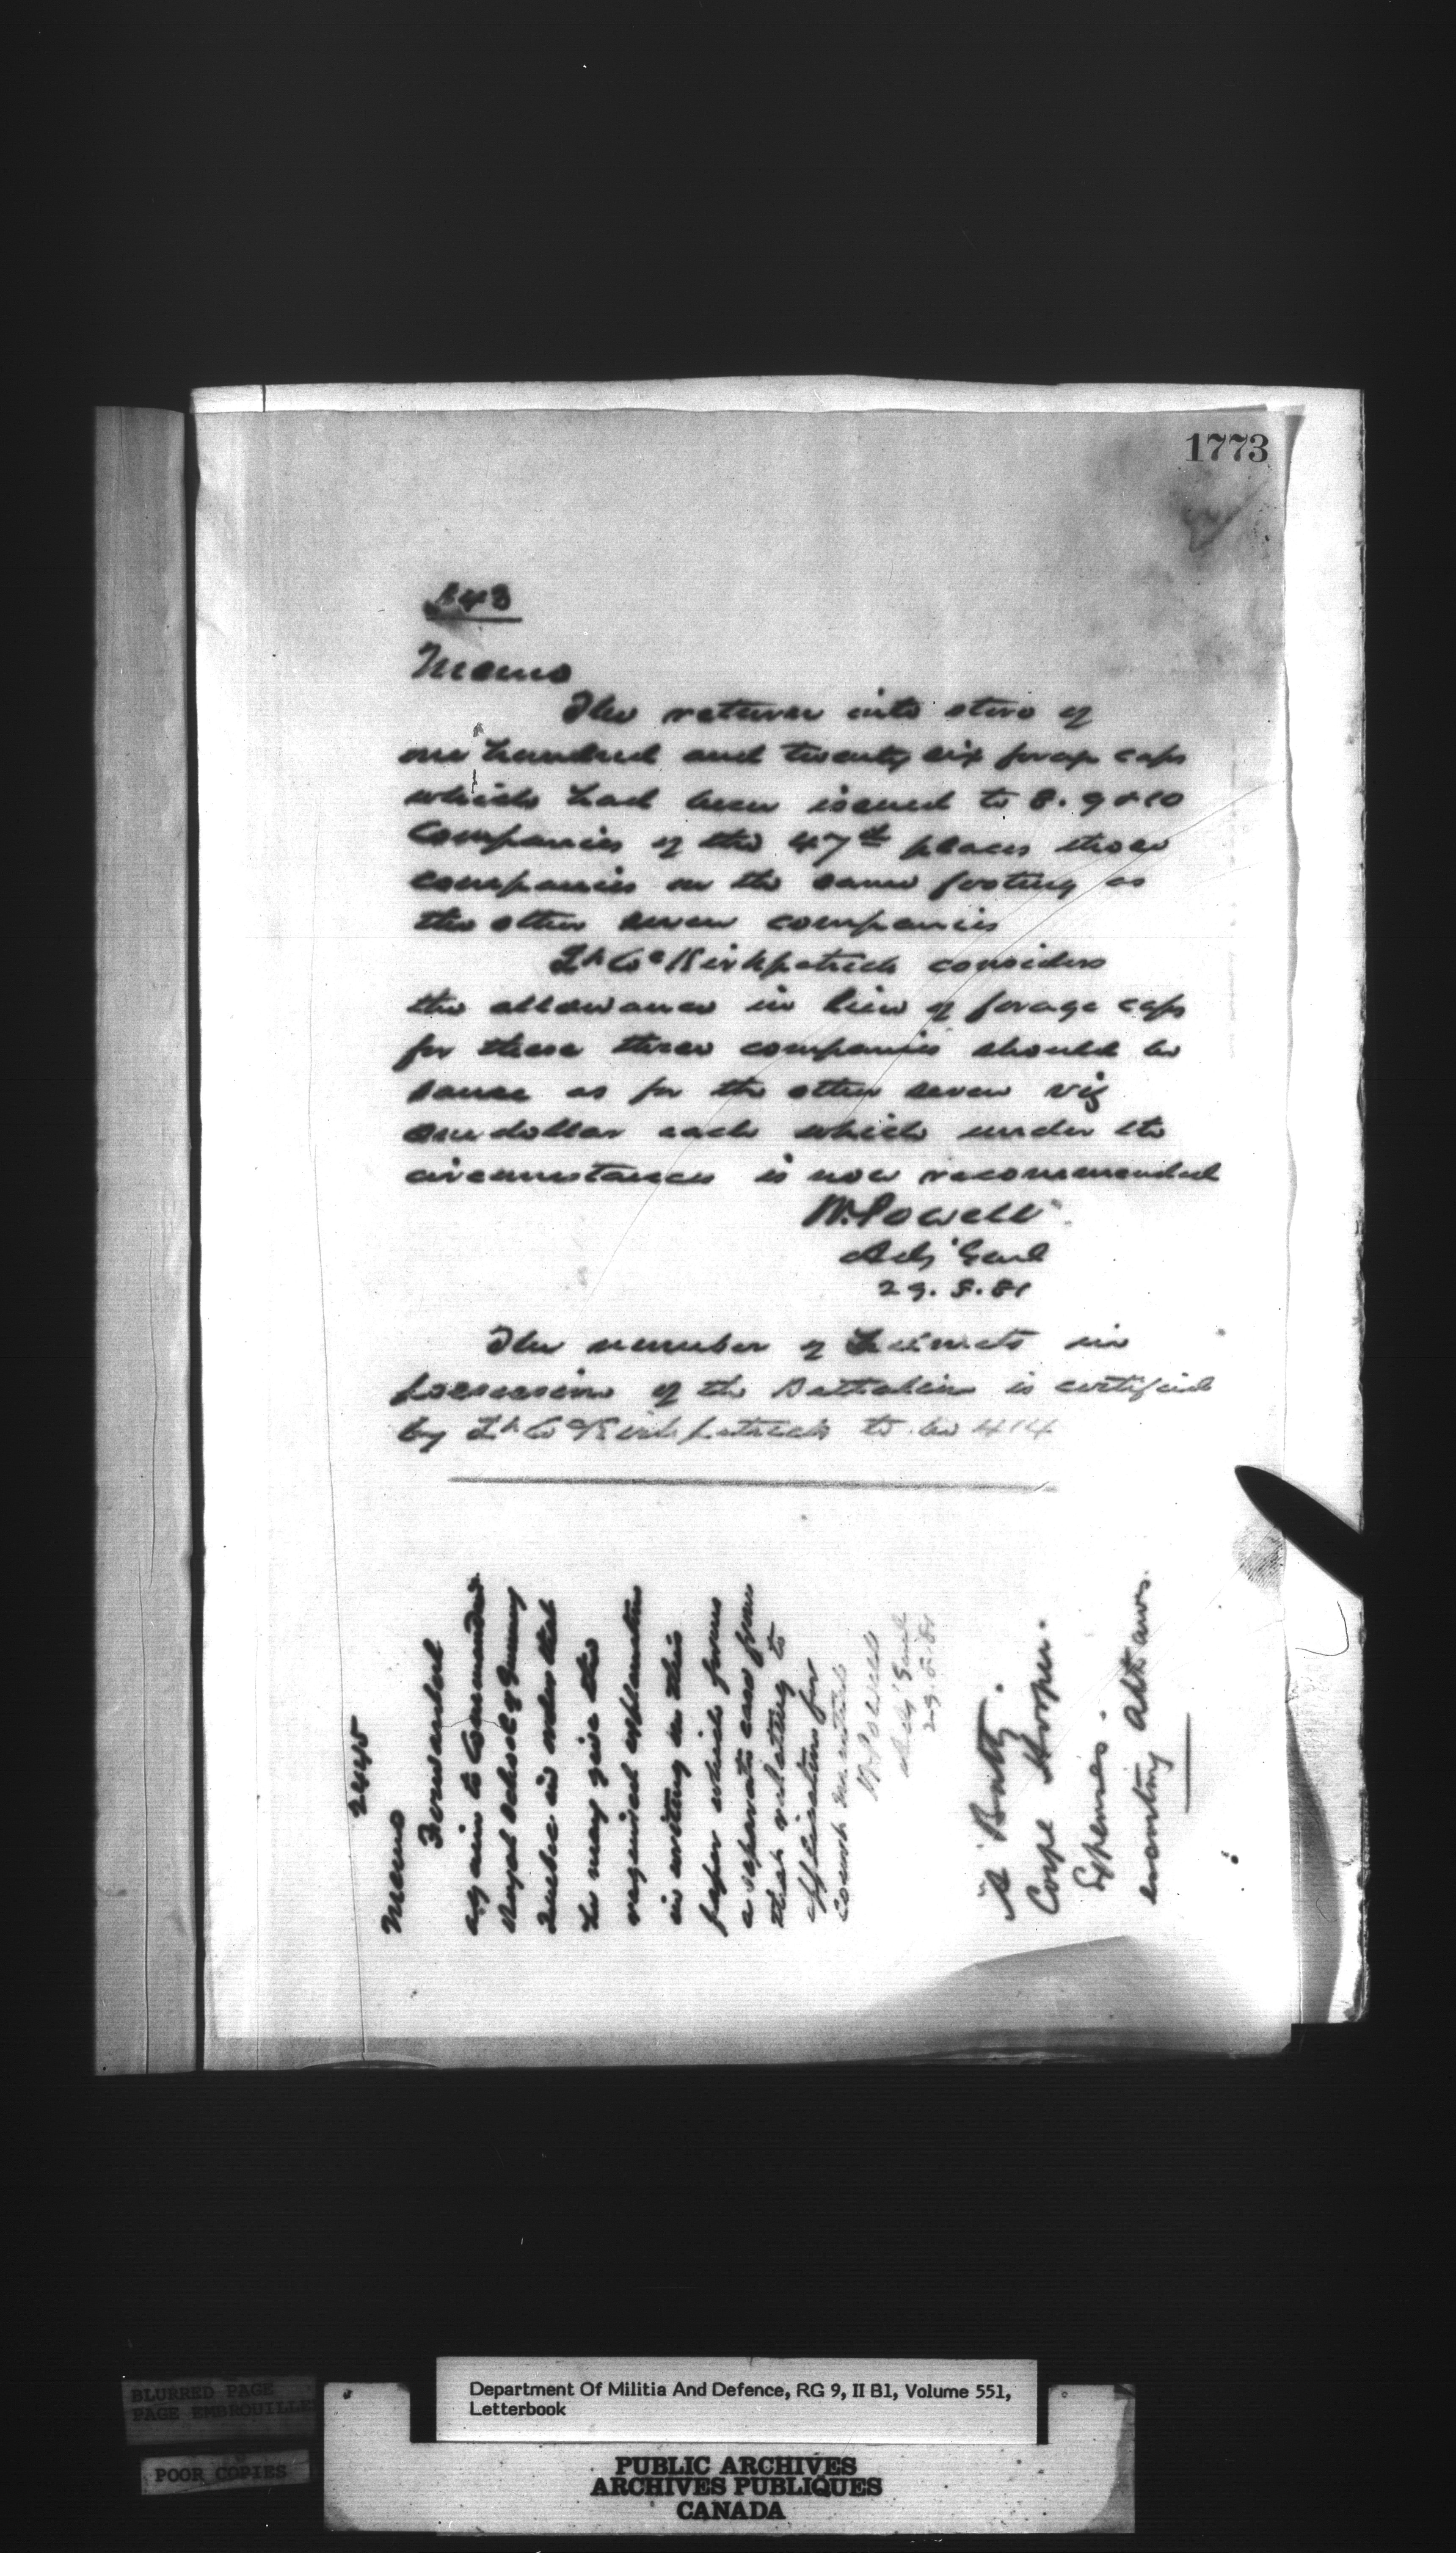 1773
Memo
The return into store of
one hundred and twenty six forage caps
which had been issued to 8. 9 & 10
Companies of the 47th places those
companies on the same footing as
the other seven companies
Lt Col Kirkpatrick considers
the allowance in lieu of forage caps
for these three companies should be
same as for the other seven viz
one dollar each which under the
circumstances is now recommended
W. Powell
Adj Genl
29. 8. 81
The number of Helmets in
possession of the Battalion is certified
by Lt Col Kirkpatrick to be 414
2445
Memo
Forwarded
again to Commandant
Royal School of Gunnery
Quebec in order that
he may give the
required explanation
in writing on this
paper which forms
a separate case from
that relating to
application for
Court Martial
W. Powell
Adj Genl
29. 8. 81
"A" Batty.
Corpl Hooper.
Expenses.
escorting Ottawa.
BLURRED PAGE
PAGE EMBROUILLE
POOR COPIES
Department Of Militia And Defence, RG 9, II B1, Volume 551,
Letterbook
PUBLIC ARCHIVES
ARCHIVES PUBLIQUES
CANADA